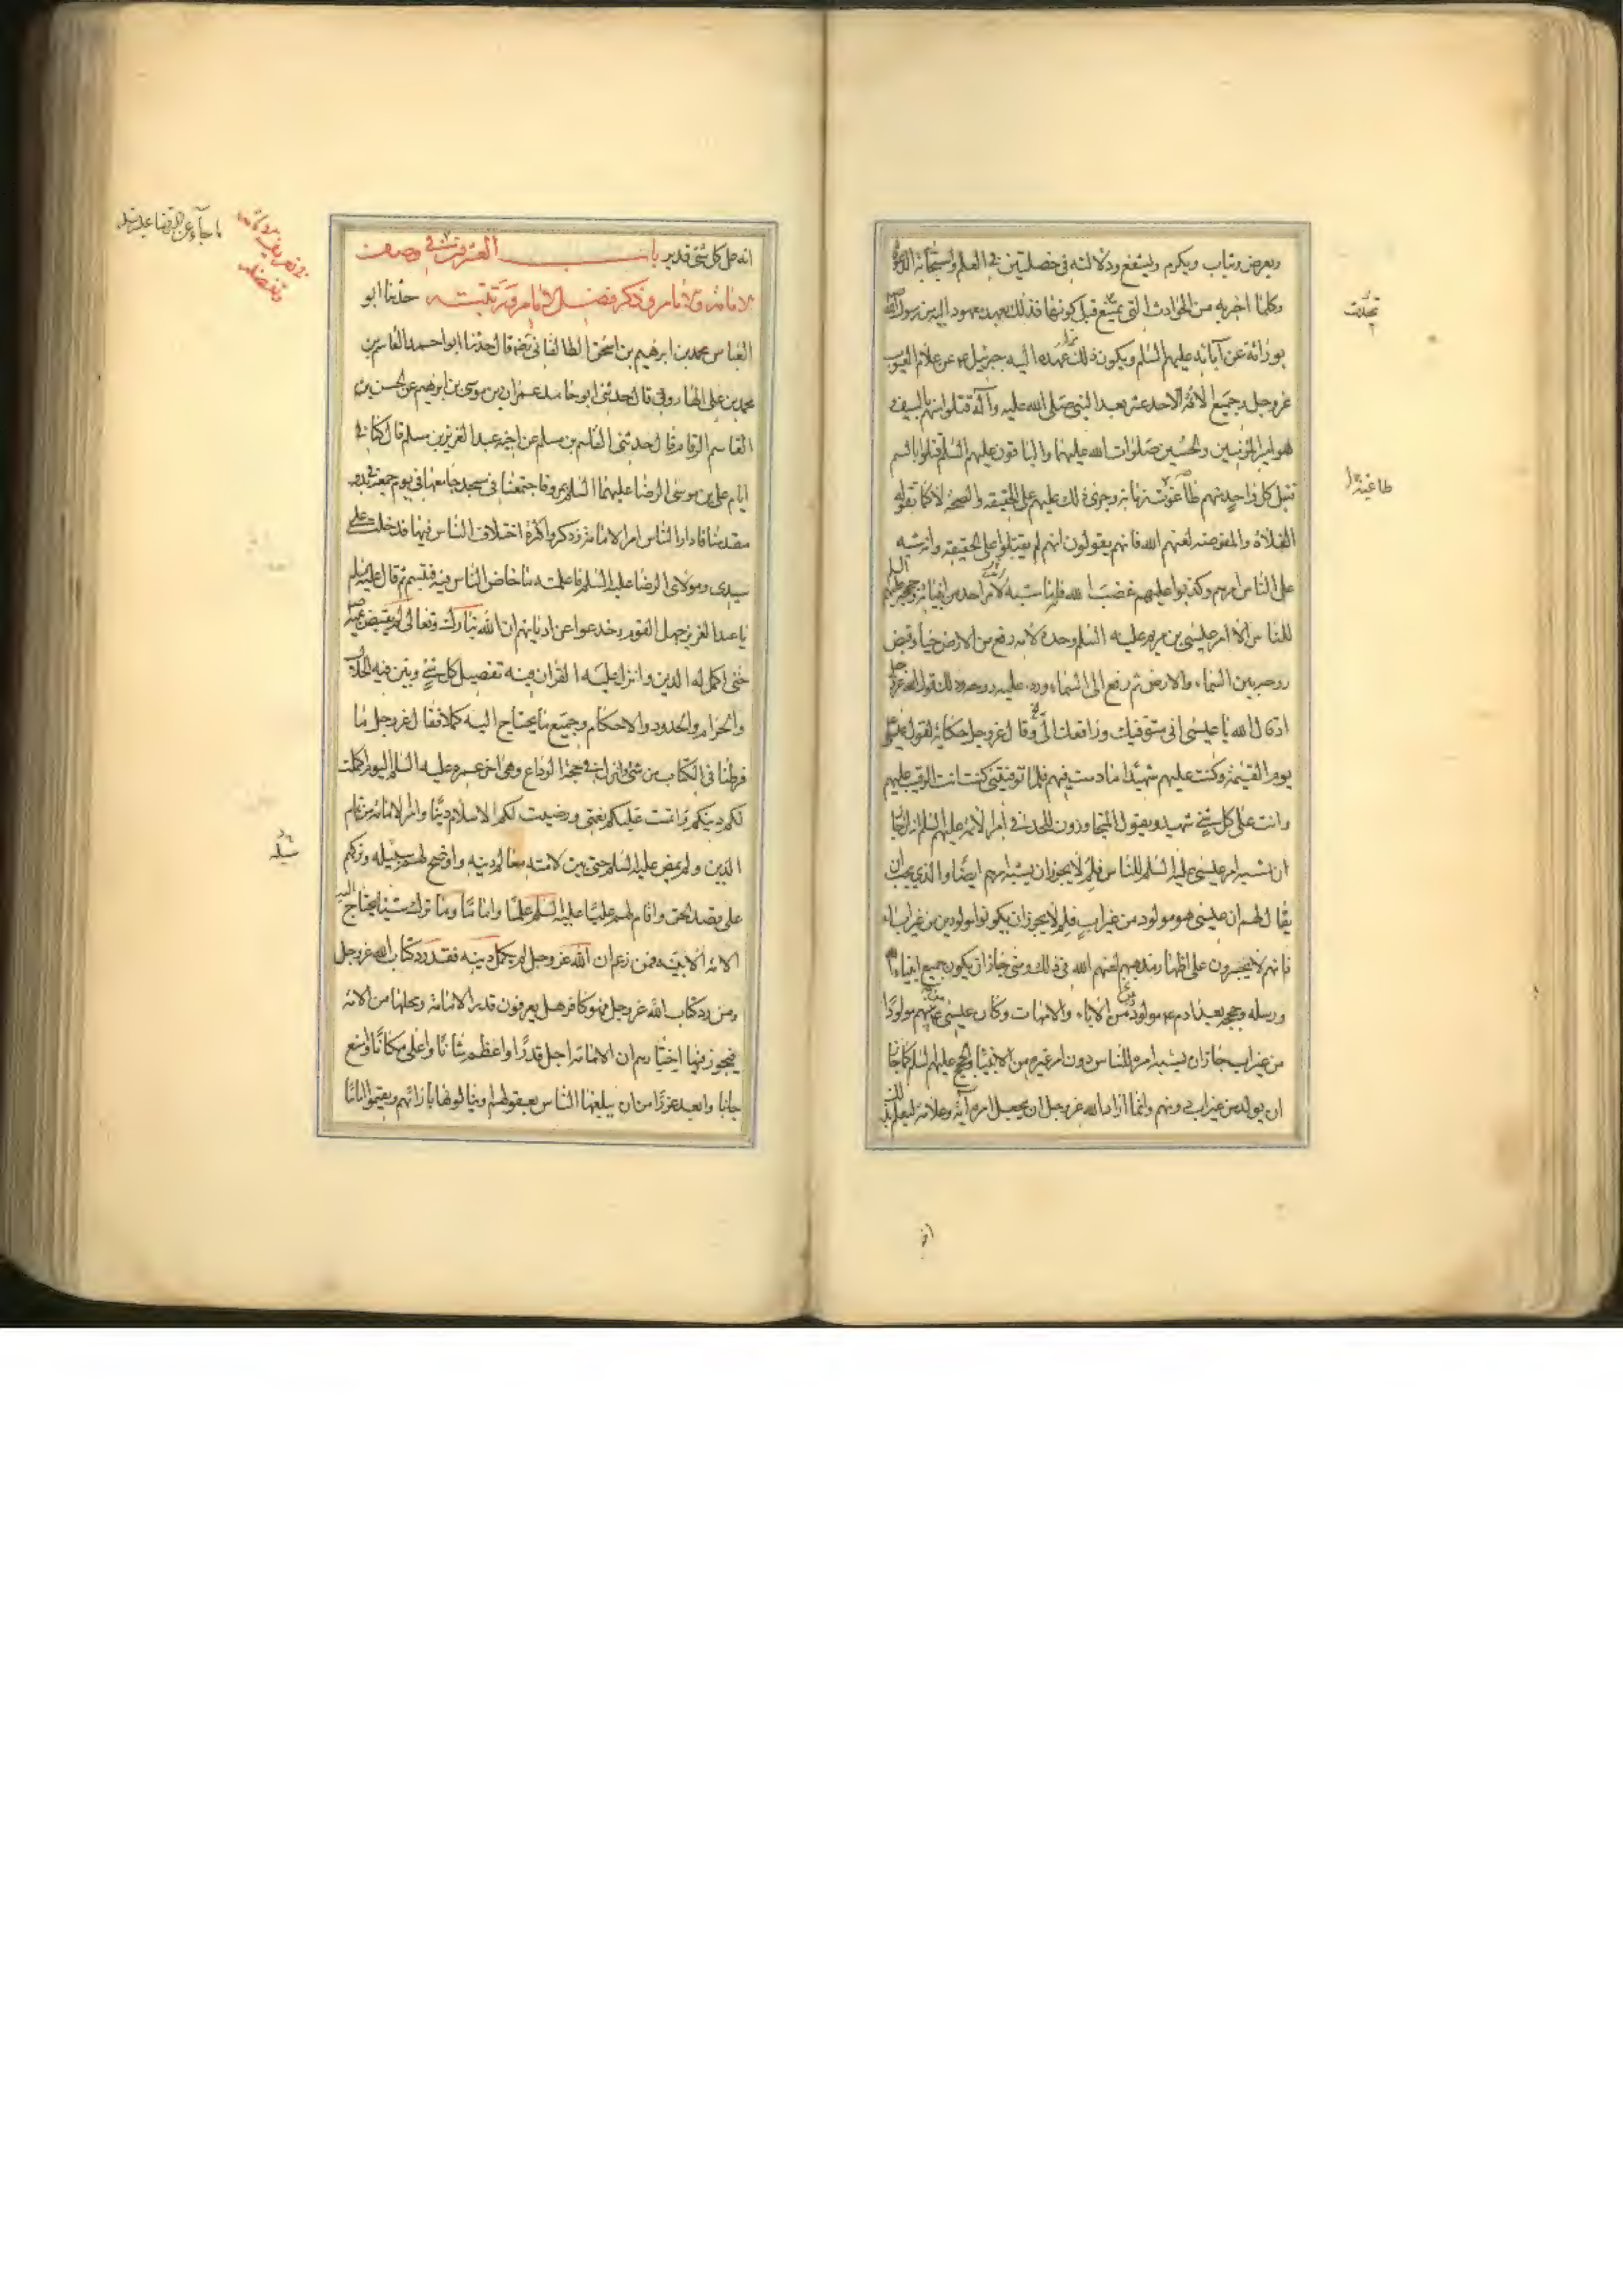 ويعرض ويثاب ويكرم ويشفع ودلالته في خصلتين في العلم واستجابة الدعوة
وكلما اخبر به من الحوادث التي تحدث قبل كونها فذلك بعهد معهود اليه من رسول الله
بوراثة عن آبائه عليهم السلم ويكون ذلك مما عهده اليه جبرئيل ع عن علام الغيوب
عز وجل وجميع الائمة الاحد عشر بعد النبي صلى الله عليه وآله قتلوا منهم بالسيف
هو امير المؤمنين والحسين صلوات الله عليهما والباقون عليهم السلم قتلوا بالسم
قتل كل واحد منهم طاغوت زمانه وجرى ذلك عليهم على الحقيقة والصحة لا كما تقوله
الغلاة والمفوضة لعنهم الله فانهم يقولون انهم لم يقتلوا على الحقيقة وانه شبه
على الناس امرهم وكذبوا عليهم غضب الله فانه ما شبه امر احد من انبياء الله وحججه عليهم السلم
للناس الا امر عيسى بن مريم عليه السلم وحده لانه رفع من الارض حيا وقبض
روحه بين السماء والارض ثم رفع الى السماء ورد عليه روحه وذلك قول الله عز وجل
اذ قال الله يا عيسى اني متوفيك ورافعك الي وقال عز وجل حكاية لقول عيسى
يوم القيمة وكنت عليهم شهيدا ما دمت فيهم فلما توفيتني كنت انت الرقيب عليهم
وانت على كل شيء شهيد ويقول المتجاوزون للحد في امر الائمة عليهم السلم انه ان جاز
ان يشبه امر عيسى عليه السلم للناس فلم لا يجوز ان يشبه امرهم ايضا والذي يجب ان
يقال لهم ان عيسى هو مولود من غير اب فلم لا يجوز ان يكونوا مولودين من غير اباء
فانهم لا يجسرون على اظهار مذهبهم لعنهم الله في ذلك ومتى جاز ان يكون جميع انبياء الله
ورسله وحججه بعد ادم ع مولودين من الاباء والامهات وكان عيسى من بينهم مولودا
من غير اب جاز ان يشبه امره للناس دون امر غيره من الانبياء والحجج عليهم السلم كما جاز
ان يولد من غير اب دونهم وانما اراد الله عز وجل ان يجعل امره آية وعلامة ليعلم بذلك
تحدث
طاغية
انه على كل شيء قدير باب العشرون في وصف
الامامة والامام وذكر فضل الامام ورتبته حدثنا ابو
العباس محمد بن ابرهيم بن اسحق الطالقاني رضه قال حدثنا ابو احمد القاسم بن
محمد بن علي الهاروني قال حدثني ابو حامد عمران بن موسى بن ابرهيم عن الحسن بن
القاسم الرقام قال حدثني القاسم بن مسلم عن اخيه عبد العزيز بن مسلم قال كنا في
ايام علي بن موسى الرضا عليهما السلم بمرو فاجتمعنا في مسجد جامعها في يوم جمعة في بدو
مقدمنا فادار الناس امر الامامة وذكروا كثرة اختلاف الناس فيها فدخلت على
سيدي ومولاي الرضا عليه السلم فاعلمته ما خاض الناس فيه فتبسم ثم قال عليه السلم
يا عبد العزيز جهل القوم وخدعوا عن اديانهم ان الله تبارك وتعالى لم يقبض نبيه
حتى اكمل له الدين وانزل عليه القرآن فيه تفصيل كل شيء وبين فيه الحلال
والحرام والحدود والاحكام وجميع ما يحتاج اليه كملا فقال عز وجل ما
فرطنا في الكتاب من شيء وانزل في حجة الوداع وهي اخر عمره عليه السلم اليوم اكملت
لكم دينكم واتممت عليكم نعمتي ورضيت لكم الاسلام دينا وامر الامامة من تمام
الدين ولم يمض عليه السلم حتى بين لامته معالم دينه واوضح لهم سبيله وتركهم
على قصد الحق واقام لهم عليا عليه السلم علما واماما وما ترك شيئا يحتاج اليه
الامة الا بينه فمن زعم ان الله عز وجل لم يكمل دينه فقد رد كتاب الله عز وجل
ومن رد كتاب الله عز وجل فهو كافر هل يعرفون قدر الامامة ومحلها من الامة
فيجوز فيها اختيارهم ان الامامة اجل قدرا واعظم شانا واعلى مكانا وامنع
جانبا وابعد غورا من ان يبلغها الناس بعقولهم او ينالوها بارائهم او يقيموا اماما